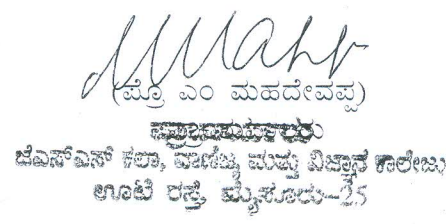 (ಪ್ರೊ ಎಂ ಮಹದೇವಪ್ಪ)
ಪ್ರಾಂಶುಪಾಲರು
ಜೆಎಸ್ಎಸ್ ಕಲಾ, ವಾಣಿಜ್ಯ ಮತ್ತು ವಿಜ್ಞಾನ ಕಾಲೇಜು
ಊಟಿ ರಸ್ತೆ, ಮೈಸೂರು-25